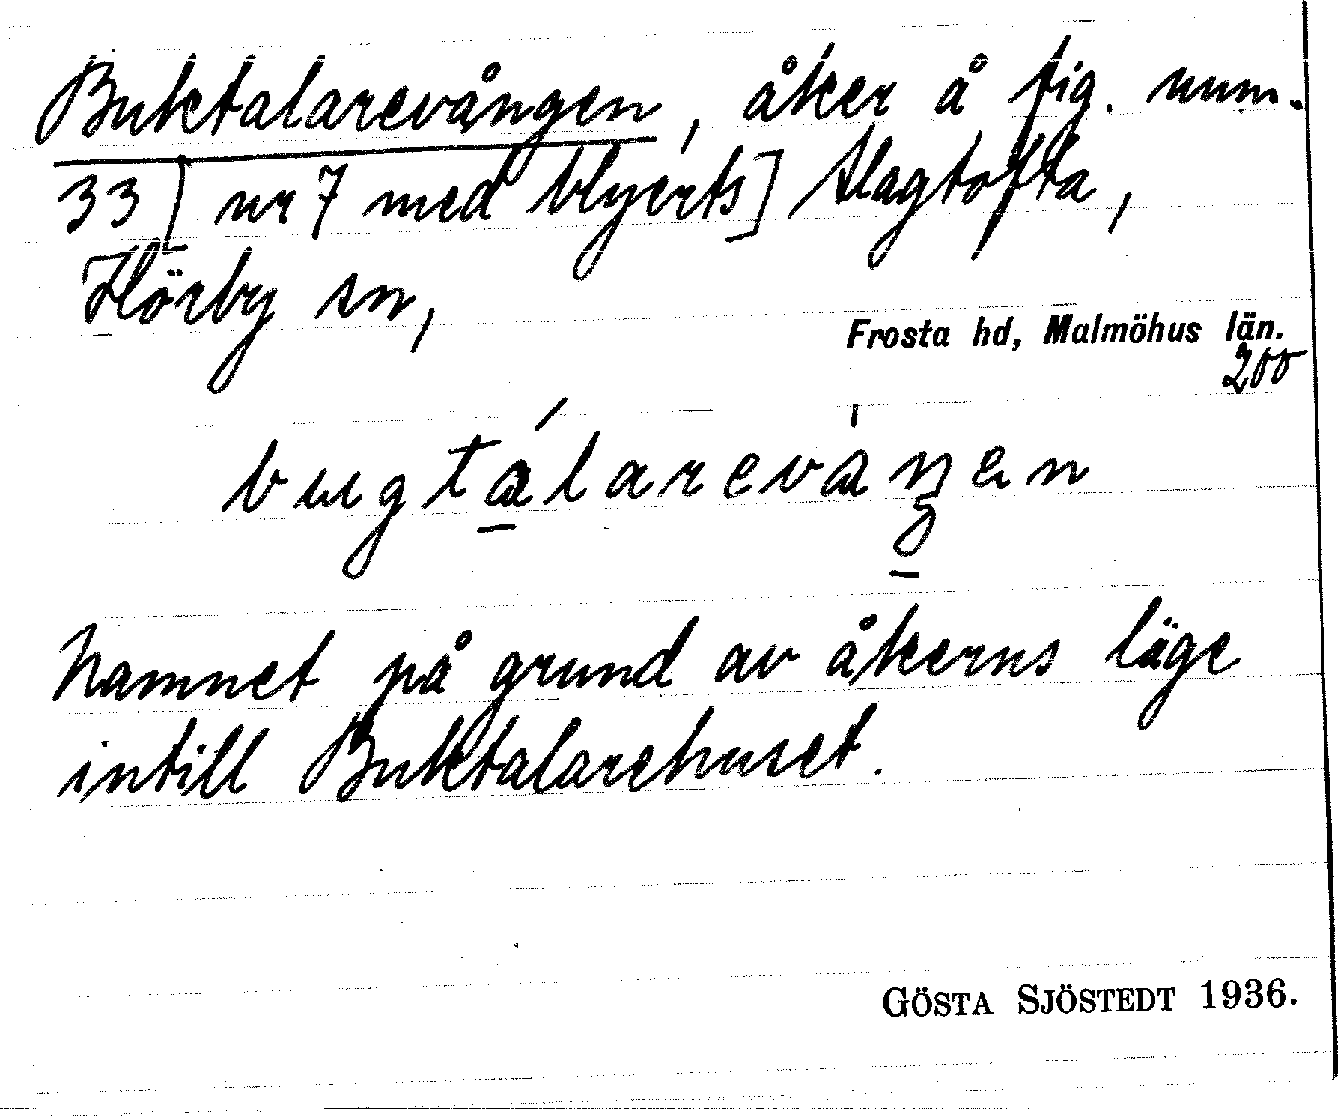 Buktalarevången, åker å fig. num.
33 [nr 7 med blyerts] Slagtofta,
Hörby sn,
Frosta hd, Malmöhus län.
200
bugtálarevàŋen
Namnet på grund av åkerns läge
intill Buktalarehuset.
GÖSTA SJÖSTEDT 1936.